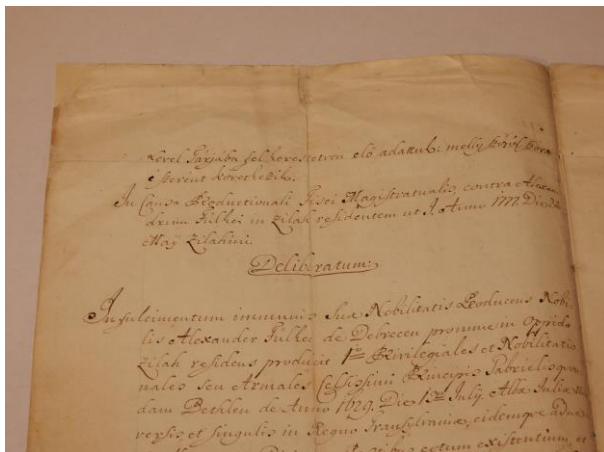 level Párjába felkerestetvén elő adattuk: melly szóról szora
e szerent következik.
In Causa Productionali Fisci Magistratualis, contra Alexan
drum Fülkei in Zilah residentem ut I. Anno 1777. Die
Maÿ Zilahini.
Deliberatum:
In fulcimentum immunis suæ Nobilitatis Producens Nobi
lis Alexander Fülkei de Debrecen pronunc in Oppido
Zilah residens produxit 1mo Privilegiales et Nobilitatio
nales seu Armales Celsissimi Principis Gabrielis quon
dam Bethlen de Anno 1629. Die 1ma July. Albæ Juliæ
versis et singulis in Regno Transylvaniæ, eidemque adne
existentium, et